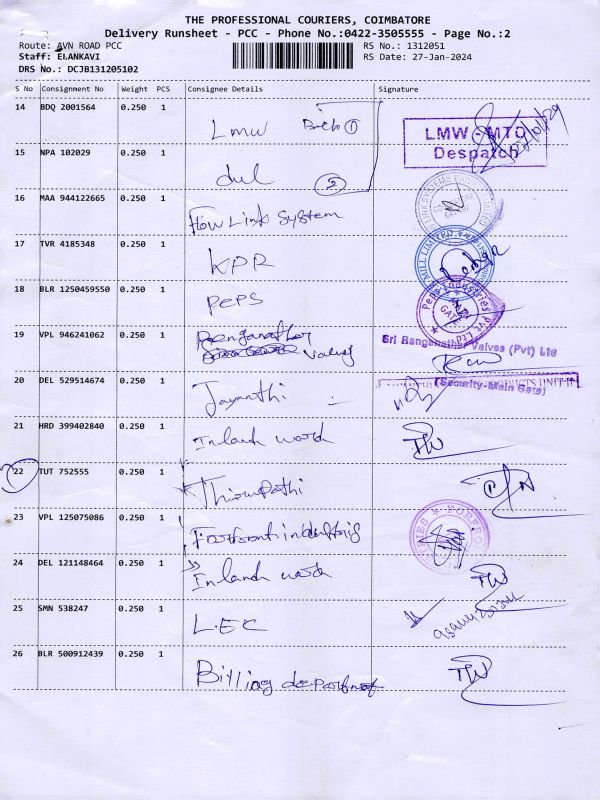 THE PROFESSIONAL COURIERS, COIMBATORE
Delivery Runsheet - PCC - Phone No.:0422-3505555 - Page No.:2
Route: AVN ROAD PCC RS No.: 1312051
Staff: ELANKAVI RS Date: 27-Jan-2024
DRS No.: DCJB131205102
S No Consignment No Weight PCS Consignee Details Signature
14 BDQ 2001564 0.250 1 Lmw
LMW - MTD
Despatch
15 NPA 102029 0.250 1
16 MAA 944122665 0.250 1 Flow Link System
17 TVR 4185348 0.250 1 KPR
18 BLR 1250459550 0.250 1 PEPS
Peps Industries Pvt Ltd
19 VPL 946241062 0.250 1 Renganathar Valves
Sri Ranganathar Valves (Pvt) Ltd
(Security-Main Gate)
20 DEL 529514674 0.250 1 Jayanthi
21 HRD 399402840 0.250 1 Inland word
22 TUT 752555 0.250 1 Thirupathi
23 VPL 125075086 0.250 1
24 DEL 121148464 0.250 1 Inland word
25 SMN 538247 0.250 1 L.EC
26 BLR 500912439 0.250 1 Billing